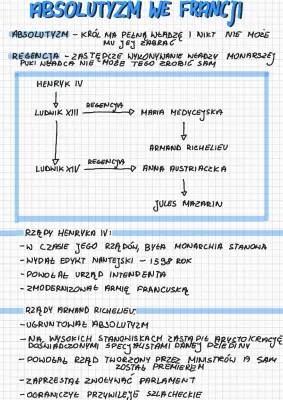 ABSOLUTYZM WE FRANCJI
ABSOLUTYZM - KRÓL MA PEŁNĄ WŁADZĘ I NIKT NIE MOŻE
MU JEJ ZABRAĆ
REGENCJA - ZASTĘPCZE WYKONYWANIE WŁADZY MONARSZEJ
PÓKI WŁADCA NIE MOŻE TEGO ZROBIĆ SAM
HENRYK IV
LUDWIK XIII REGENCJA MARIA MEDYCEJSKA
ARMAND RICHELIEU
LUDWIK XIV REGENCJA ANNA AUSTRIACZKA
JULES MAZARIN
RZĄDY HENRYKA IV:
- W CZASIE JEGO RZĄDÓW, BYŁA MONARCHIA STANOWA
- WYDAŁ EDYKT NANTEJSKI - 1598 ROK
- POWOŁAŁ URZĄD INTENDENTA
- ZMODERNIZOWAŁ ARMIĘ FRANCUSKĄ
RZĄDY ARMAND RICHELIEU:
- UGRUNTOWAŁ ABSOLUTYZM
- NA WYSOKICH STANOWISKACH ZASTĄPIŁ ARYSTOKRACJĘ
DOŚWIADCZONYMI SPECJALISTAMI DANEJ DZIEDZINY
- POWOŁAŁ RZĄD TWORZONY PRZEZ MINISTRÓW A SAM
ZOSTAŁ PREMIEREM
- ZAPRZESTAŁ ZWOŁYWAĆ PARLAMENT
- OGRANICZYŁ PRZYWILEJE SZLACHECKIE